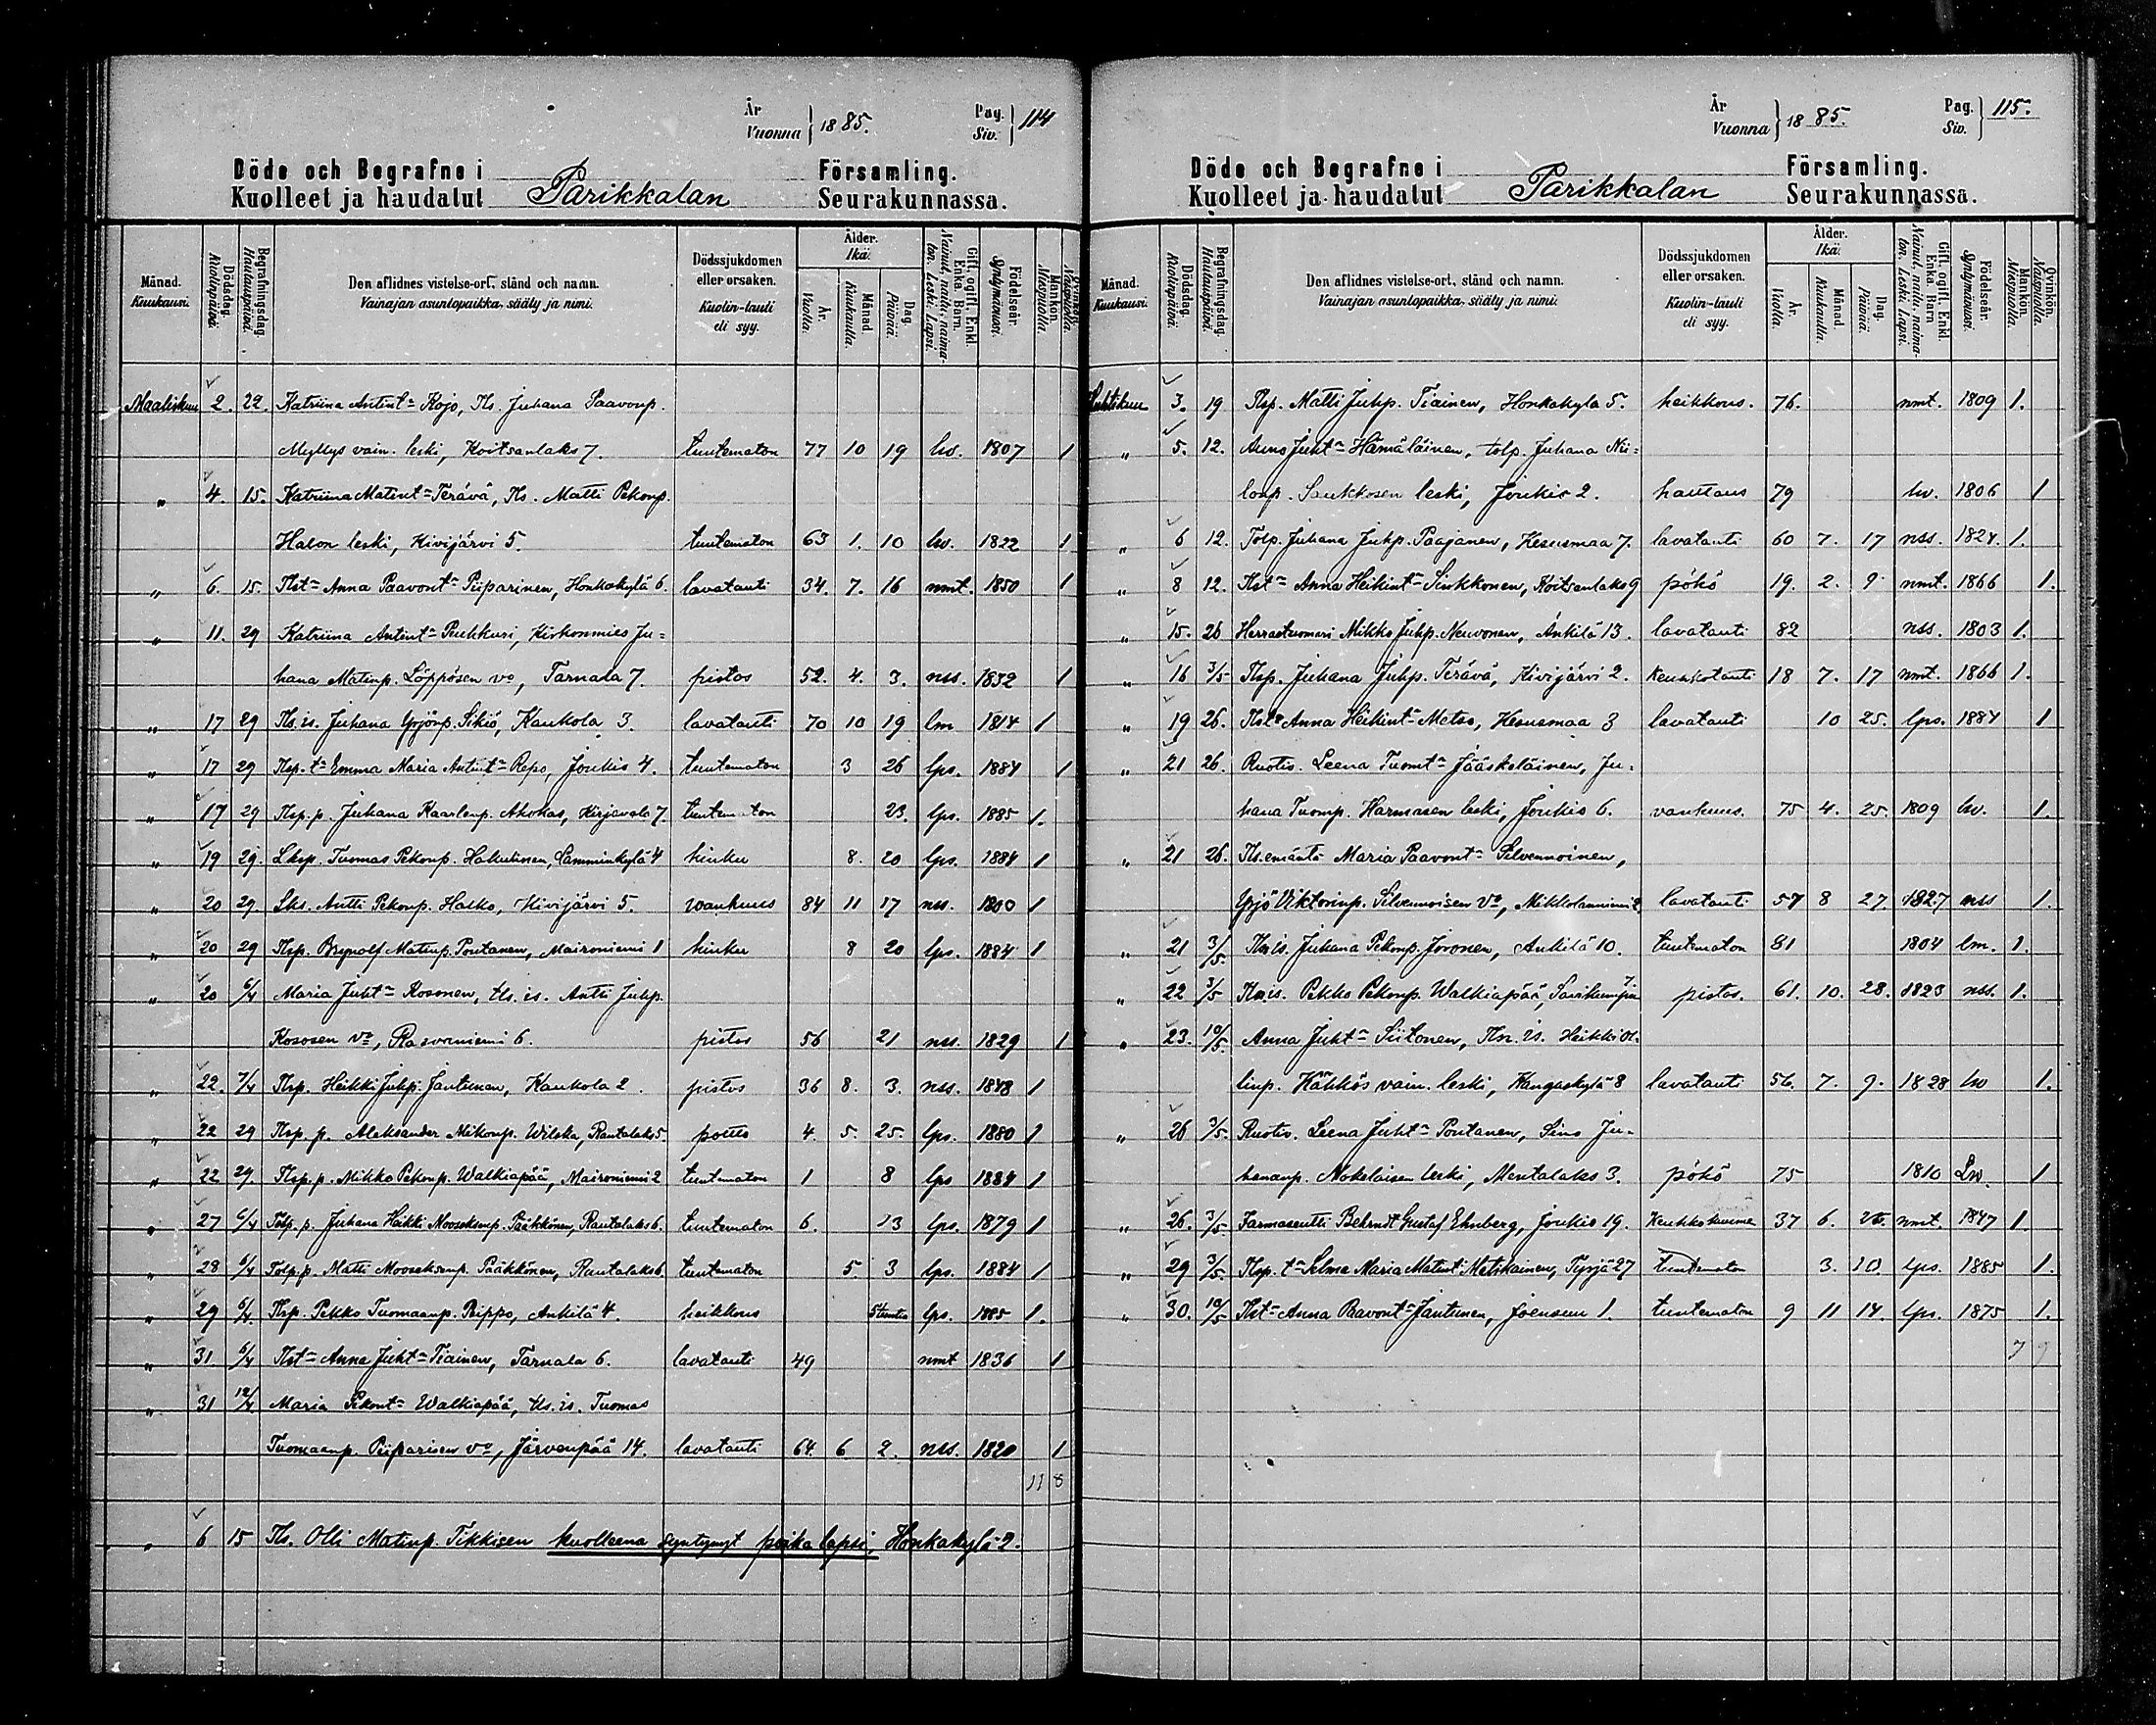 År Vuonna 1885. Pag. Siv. 114
Döde och Begrafne i Församling.
Kuolleet ja haudatut Parikkalan Seurakunnassa.
Månad. Kuukausi. Dödsdag. Kuolinpäivä. Begrafningsdag. Hautauspäivä. Den aflidnes vistelse-ort, stånd och namn. Vainajan asuntopaikka, sääty ja nimi. Dödssjukdomen eller orsaken. Kuolin-tauti eli syy. Ålder. Ikä. År. Vuotta. Månad. Kuukautta. Dag. Päivää. Gift, ogift. Enkl. Enka. Barn. Nainut, naitu, naimaton. Leski. Lapsi. Födelseår. Syntymävuosi. Mankön. Miespuolia. Qvinkön. Naispuolia.
Maaliskuu 2. 22. Katriina Antint. Kojo, Tls. Juhana Paavonp.
Myllys vain. leski, Koitsanlaks 7. tuntematon 77 10 19 lw. 1807 1
„ 4. 15. Katriina Matint. Terävä, Tls. Matti Pekonp.
Halon leski, Kivijärvi 5. tuntematon 63 1. 10 lw. 1822 1
„ 6. 15. Tlst. Anna Paavont. Piiparinen, Honkakylä 6. lavatauti 34. 7. 16 nmt. 1850 1
„ 11. 29 Katriina Antint. Puhkuri, Kirkonmies Ju=
hana Matinp. Löppösen vo, Tarnala 7. pistos 52. 4. 3. nss. 1832 1
„ 17 29 Tls. is. Juhana Yrjönp. Sikiö, Kaukola 3. lavatauti 70 10 19 lm 1814 1
„ 17 29 Tlsp. t. Emma Maria Antint. Repo, Joukio 4. tuntematon 3 26 lps. 1884 1
„ 17 29 Tlsp. p. Juhana Kaarlenp. Ahokas, Kirjavala 7. tuntematon 23. lps. 1885 1.
„ 19 29. Lksp. Tuomas Pekonp. Hakulinen, Lamminkylä 4 hinku 8. 20 lps. 1884 1
„ 20 29. Lks. Antti Pekonp. Halko, Kivijärvi 5. vanhuus 84 11 17 nss. 1800 1
„ 20 29 Tlsp. Brynolf Matinp. Pontanen, Maironiemi 1 hinku 8 20 lps. 1884 1
„ 20 6/4 Maria Juht. Kosonen, tls. is. Antti Juhp.
Kososen vo, Rasvaniemi 6. pistos 56 21 nss. 1829 1
„ 22. 7/4 Tlsp. Heikki Juhp. Jantunen, Kaukola 2. pistos 36 8. 3. nss. 1848 1
„ 22 29 Tlsp. p. Aleksander Mikonp. Wilska, Rautalaks 5. 4. 5. 25. lps. 1880 1
„ 22 29. Tlsp. p. Mikko Pekonp. Walkiapää, Maironiemi 2 tuntematon 1 8 lps 1884 1
„ 27 6/4 Tolp. p. Juhana Heikki Mooseksenp. Pääkkönen, Rautalaks 6. tuntematon 6. 13 lps. 1879 1
„ 28 6/4 Tolp. p. Matti Mooseksenp. Pääkkönen, Rautalaks 6. tuntematon 5. 3 lps. 1884 1
„ 29 6/4. Tlsp. Pekko Tuomaanp. Reippo, Ankilä 4. heikkous 5 tuntia lps. 1885 1.
„ 31. 6/4 Tlst. Anna Juht. Tiainen, Tarnala 6. lavatauti 49 nmt 1836 1
„ 31 12/4. Maria Pekont. Walkiapää, tls. is. Tuomas
Tuomaanp. Piiparisen vo, Järvenpää 14. lavatauti 64. 6 2. nss. 1820 1
11 8
„ 6 15 Tls. Olli Matinp. Tikkisen kuolleena syntynyt poika lapsi, Honkakylä 2.
År Vuonna 1885. Pag. Siv. 115.
Döde och Begrafne i Församling.
Kuolleet ja haudatut Parikkalan Seurakunnassa.
Månad. Kuukausi. Dödsdag. Kuolinpäivä. Begrafningsdag. Hautauspäivä. Den aflidnes vistelse-ort, stånd och namn. Vainajan asuntopaikka, sääty ja nimi. Dödssjukdomen eller orsaken. Kuolin-tauti eli syy. Ålder. Ikä. År. Vuotta. Månad. Kuukautta. Dag. Päivää. Gift, ogift. Enkl. Enka. Barn Nainut, naitu, naimaton. Leski. Lapsi. Födelseår. Syntymävuosi. Mankön. Miespuolia. Qvinkön. Naispuolia.
Huhtikuu 3. 19 Tlsp. Matti Juhp. Tiainen, Honkakylä 5. heikkous. 76. nmt. 1809 1.
„ 5. 12. Anna Juht. Hämäläinen, tolp. Juhana Nii=
lonp. Saukkosen leski, Joukio 2. 79 lw. 1806 1
„ 6 12. Tolp. Juhana Juhp. Paajanen, Kesusmaa 7. lavatauti 60 7. 17 nss. 1824. 1.
„ 8 12. Tlst. Anna Heikint. Sinkkonen, Koitsanlaks 9 pöhö 19. 2. 9 nmt. 1866 1.
„ 15. 26 Herrastuomari Mikko Juhp. Neuvonen, Ankilä 13. lavatauti 82 nss. 1803 1.
„ 16 3/5 Tlsp. Juhana Juhp. Terävä, Kivijärvi 2. keuhkotauti 18 7. 17 nmt. 1866 1.
„ 19 26. Tlst. Anna Heikint. Metso, Kesusmaa 3 lavatauti 10 25. lps. 1884 1
„ 21 26. Ruotis. Leena Tuomt. Jääskeläinen, Ju=
hana Tuomp. Harmasen leski, Joukio 6. vanhuus. 75 4. 25. 1809 lw. 1.
„ 21 26. Tls. emäntä Maria Paavont. Silvennoinen,
Yrjö Viktorinp. Silvennoisen vo, Mikkolanniemi 2. lavatauti 57 8 27. 1827 nss 1.
„ 21 3/5 Tlnis. Juhana Pekonp. Joronen, Ankilä 10. tuntematon 81 1804 lm. 1.
„ 22 3/5 Tlnis. Pekko Pekonp. Walkiapää, pistos. 61. 10. 28. 1823 nss. 1.
„ 23. 10/5. Anna Juht. Siitonen, Tln. is. Heikki Ol=
linp. Kähkös vain. leski, Kangaskylä 8 lavatauti 56. 7. 9. 1828 lw 1.
„ 26 3/5. Ruotis. Leena Juht. Pontanen, Simo Ju=
hananp. Mokelaisen leski, Mentalaks 3. pöhö 75 1810 Lw. 1
„ 26. 3/5. Farmaseutti Behrndt Gustaf Ehnberg, Joukio 19. 37 6. 26. nmt. 1847 1.
„ 29 3/5. Tlsp. t. Selma Maria Matint. Matikainen, Tyrjä 27 tuntematon 3. 10. lps. 1885 1.
„ 30. 10/5 Tlst. Anna Paavont. Jantunen, Joensuu 1. tuntematon 9 11 14. lps. 1875 1.
7 9